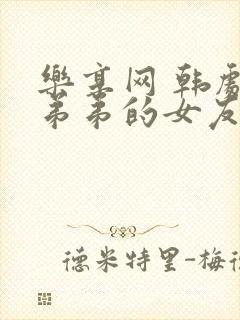 樂高网 韩剧
弟弟的女友
德米特里-梅德